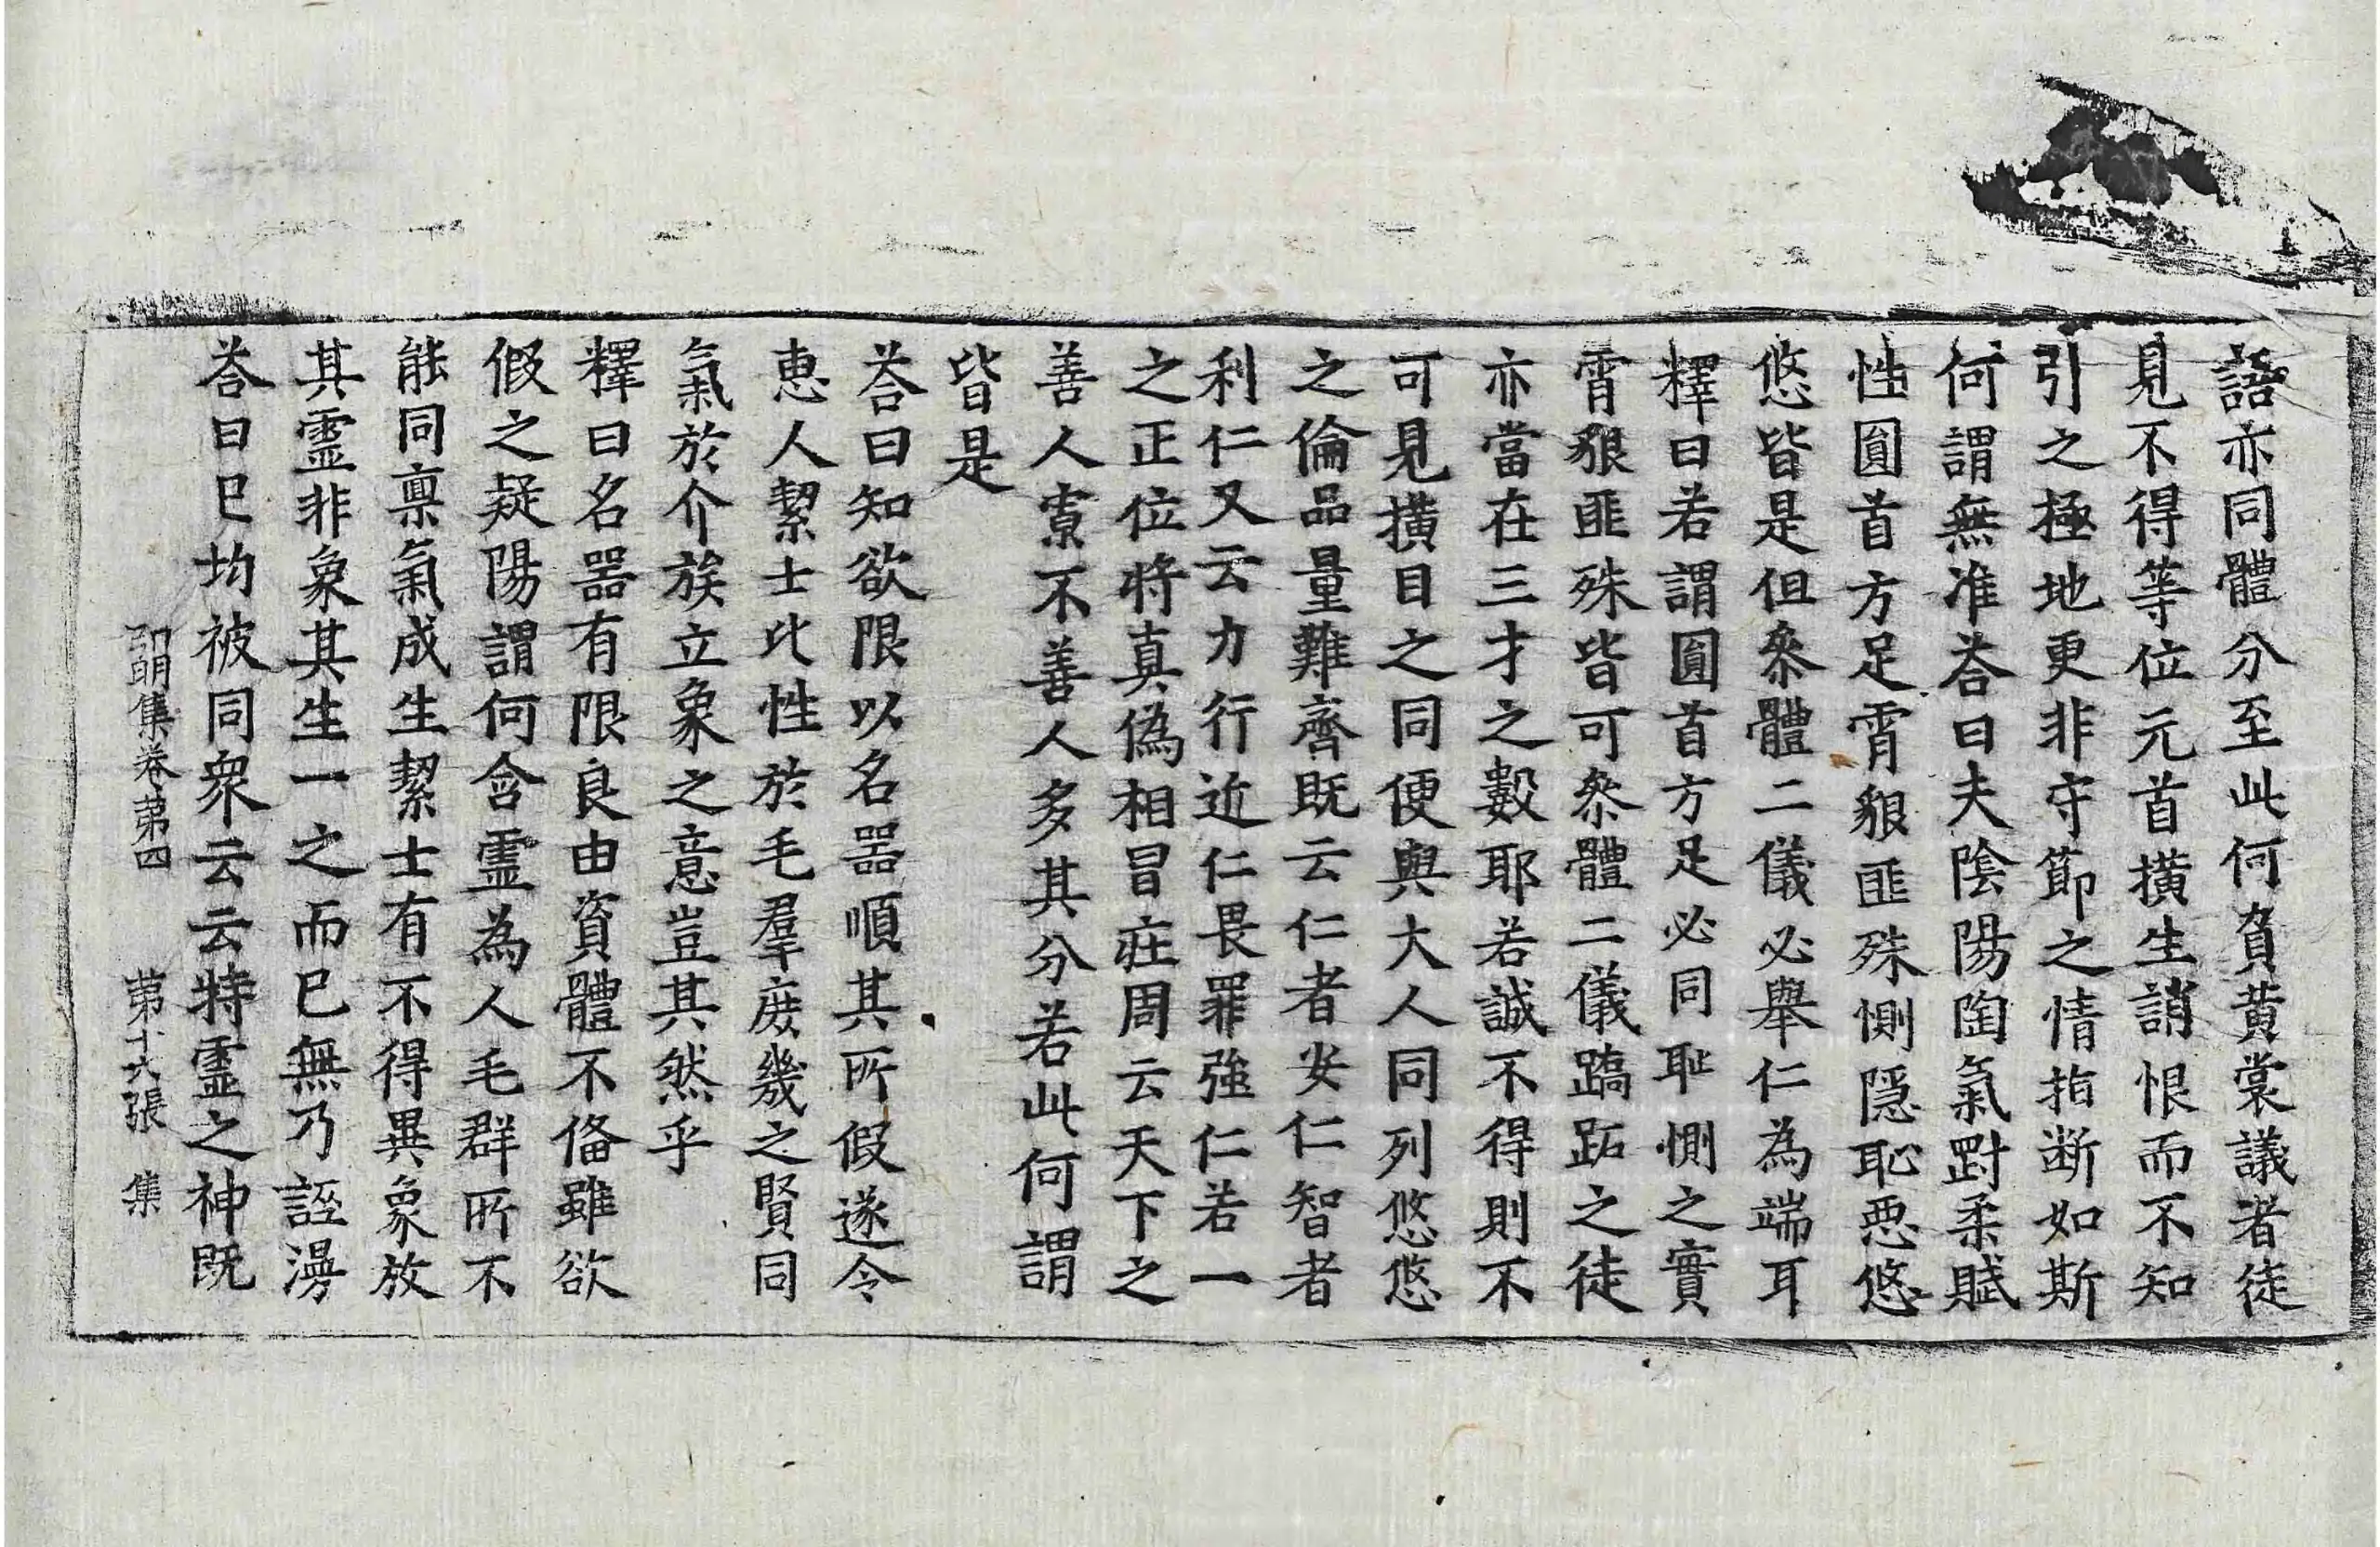 語亦同體分至此何負黃裳議者徒
見不得等位元首橫生誚恨而不知
引之極地更非守節之情指断如斯
何謂無准荅曰夫陰陽陶氣對柔賦
性圓首方足霄貌匪殊惻隱恥惡悠
悠皆是但叅體二儀必舉仁為端耳
釋曰若謂圓首方足必同恥惻之實
霄貌匪殊皆可叅體二儀蹻跖之徒
亦當在三才之數耶若誠不得則不
可見橫目之同便與大人同列悠悠
之倫品量難齊既云仁者安仁智者
利仁又云力行近仁畏罪強仁若一
之正位將真偽相冒莊周云天下之
善人寡不善人多其分若此何謂
皆是
荅曰知欲限以名器順其所假遂令
惠人絜士比性於毛羣庶幾之賢同
氣於介族立象之意豈其然乎
釋曰名器有限良由資體不俻雖欲
假之疑陽謂何含靈為人毛群所不
能同稟氣成生絜士有不得異象放
其靈非象其生一之而已無乃誣漫
荅曰已均被同衆云云特靈之神既
弘明集卷第四　第十六張　集